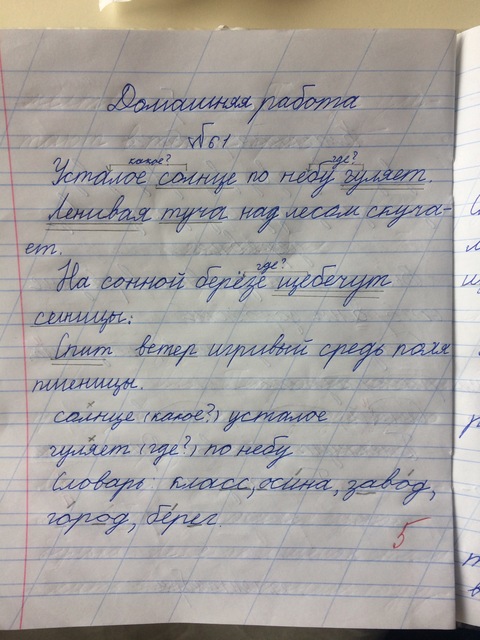 Домашняя работа
№61
какое? где?
Усталое солнце по небу гуляет.
Ленивая туча над лесом скуча-
ет.
где?
На сонной берёзе щебечут
синицы.
Спит ветер игривый средь поля
пшеницы.
солнце (какое?) усталое
гуляет (где?) по небу
Словарь: класс, осина, завод,
город, берег.
5